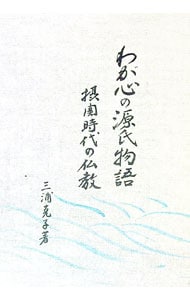 わが心の源氏物語
摂関時代の仏教
三浦克子著